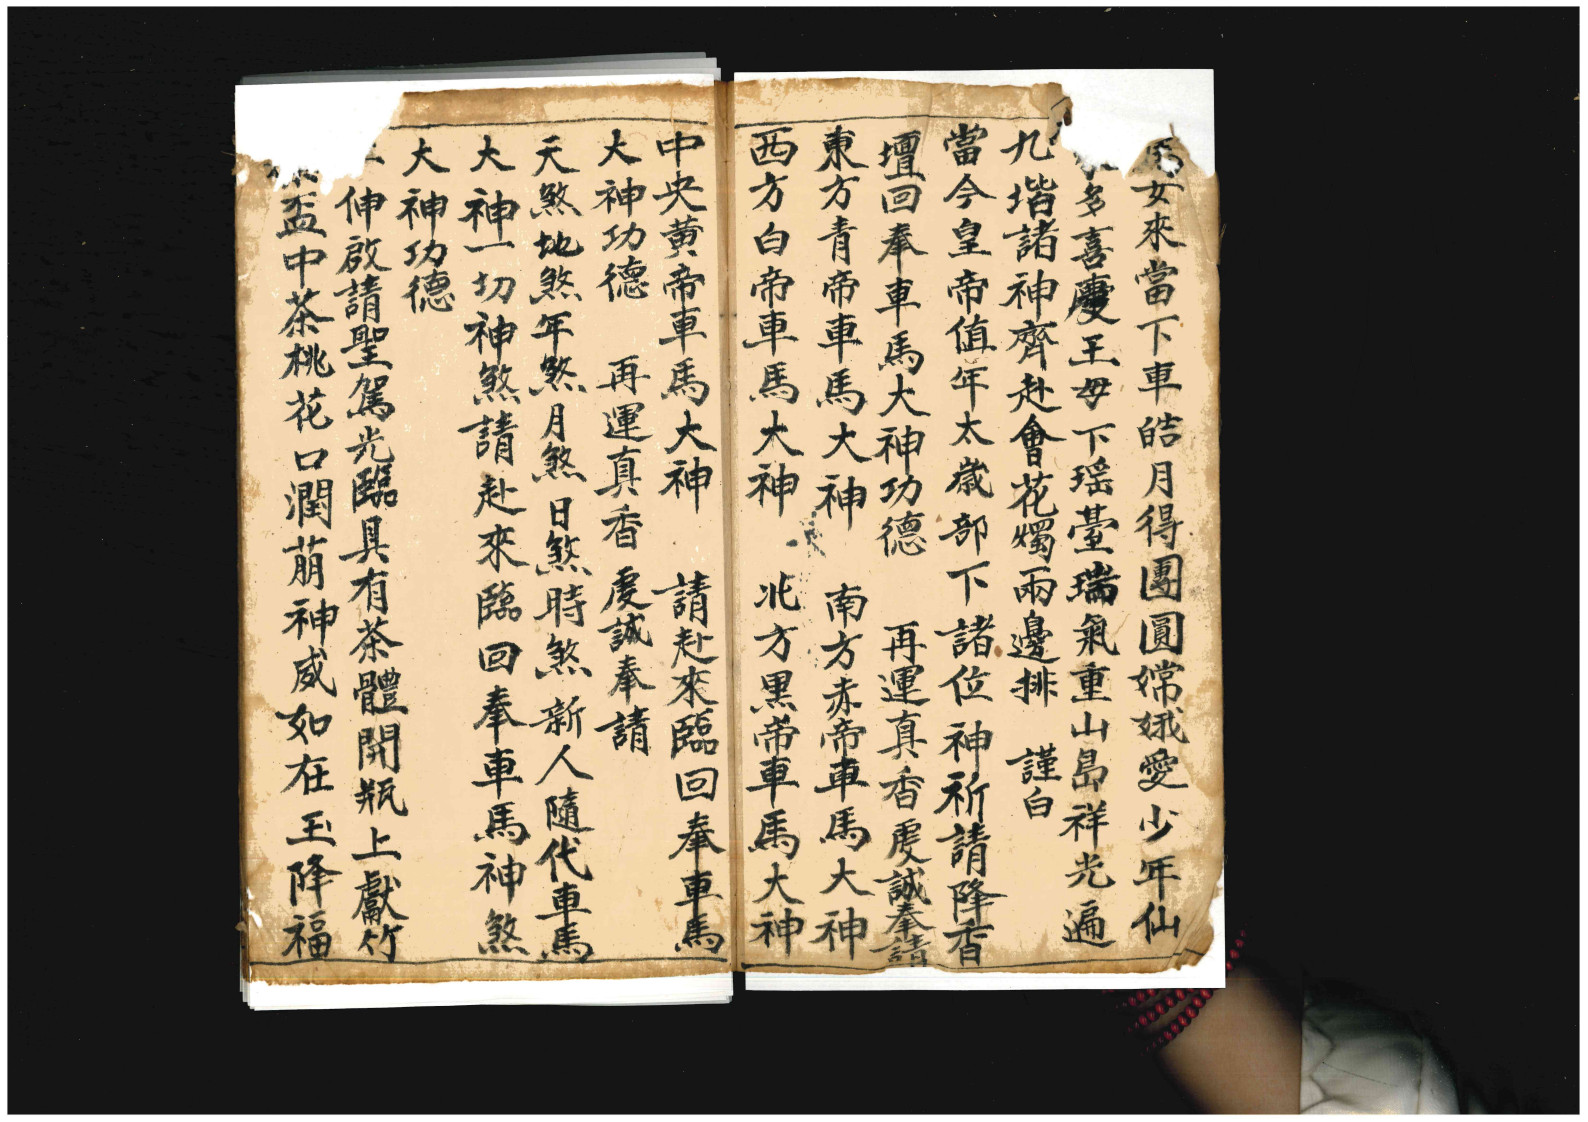 女來當下車皓月得團圓嫦娥愛少年仙
多喜慶王母下瑶臺瑞氣重山島祥光遍
九堦諸神齊赴會花燭兩邊排　謹白
當今皇帝值年太歲部下諸位神祈請降香
壇回奉車馬大神功德　再運真香虔誠奉請
東方青帝車馬大神　南方赤帝車馬大神
西方白帝車馬大神　北方黑帝車馬大神
中央黄帝車馬大神　請赴來臨回奉車馬
大神功德　再運真香虔誠奉請
天煞地煞年煞月煞日煞時煞新人隨代車馬
大神一切神煞請赴來臨回奉車馬神煞
大神功德
伸啟請聖駕光臨具有茶體開瓶上獻竹
盃中茶桃花口潤萠神威如在玉降福